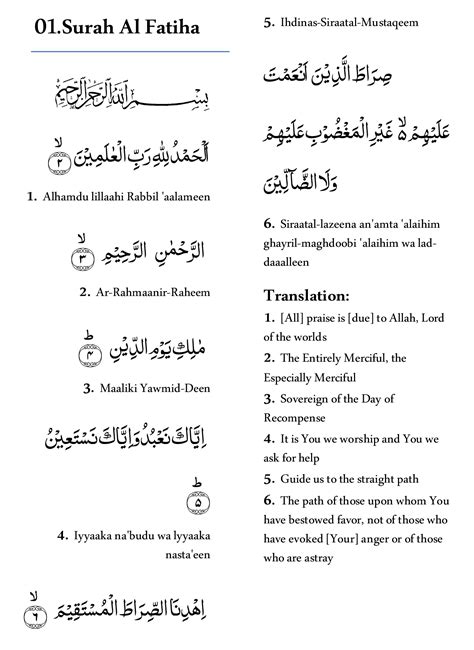 01.Surah Al Fatiha
بِسْمِ اللهِ الرَّحْمٰنِ الرَّحِيْمِ
اَلْحَمْدُ لِلّٰهِ رَبِّ الْعٰلَمِيْنَ ۙ ۲
1. Alhamdu lillaahi Rabbil 'aalameen
الرَّحْمٰنِ الرَّحِيْمِ ۙ ۳
2. Ar-Rahmaanir-Raheem
مٰلِكِ يَوْمِ الدِّيْنِ ؕ ۴
3. Maaliki Yawmid-Deen
اِيَّاكَ نَعْبُدُ وَاِيَّاكَ نَسْتَعِيْنُ
ؕ ۵
4. Iyyaaka na'budu wa lyyaaka
nasta'een
اِهْدِنَا الصِّرَاطَ الْمُسْتَقِيْمَ ۙ ۶
5. Ihdinas-Siraatal-Mustaqeem
صِرَاطَ الَّذِيْنَ اَنْعَمْتَ
عَلَيْهِمْ ۙ۵ غَيْرِ الْمَغْضُوْبِ عَلَيْهِمْ
وَلَا الضَّآلِّيْنَ
6. Siraatal-lazeena an'amta 'alaihim
ghayril-maghdoobi 'alaihim wa lad-
daaalleen
Translation:
1. [All] praise is [due] to Allah, Lord
of the worlds
2. The Entirely Merciful, the
Especially Merciful
3. Sovereign of the Day of
Recompense
4. It is You we worship and You we
ask for help
5. Guide us to the straight path
6. The path of those upon whom You
have bestowed favor, not of those who
have evoked [Your] anger or of those
who are astray